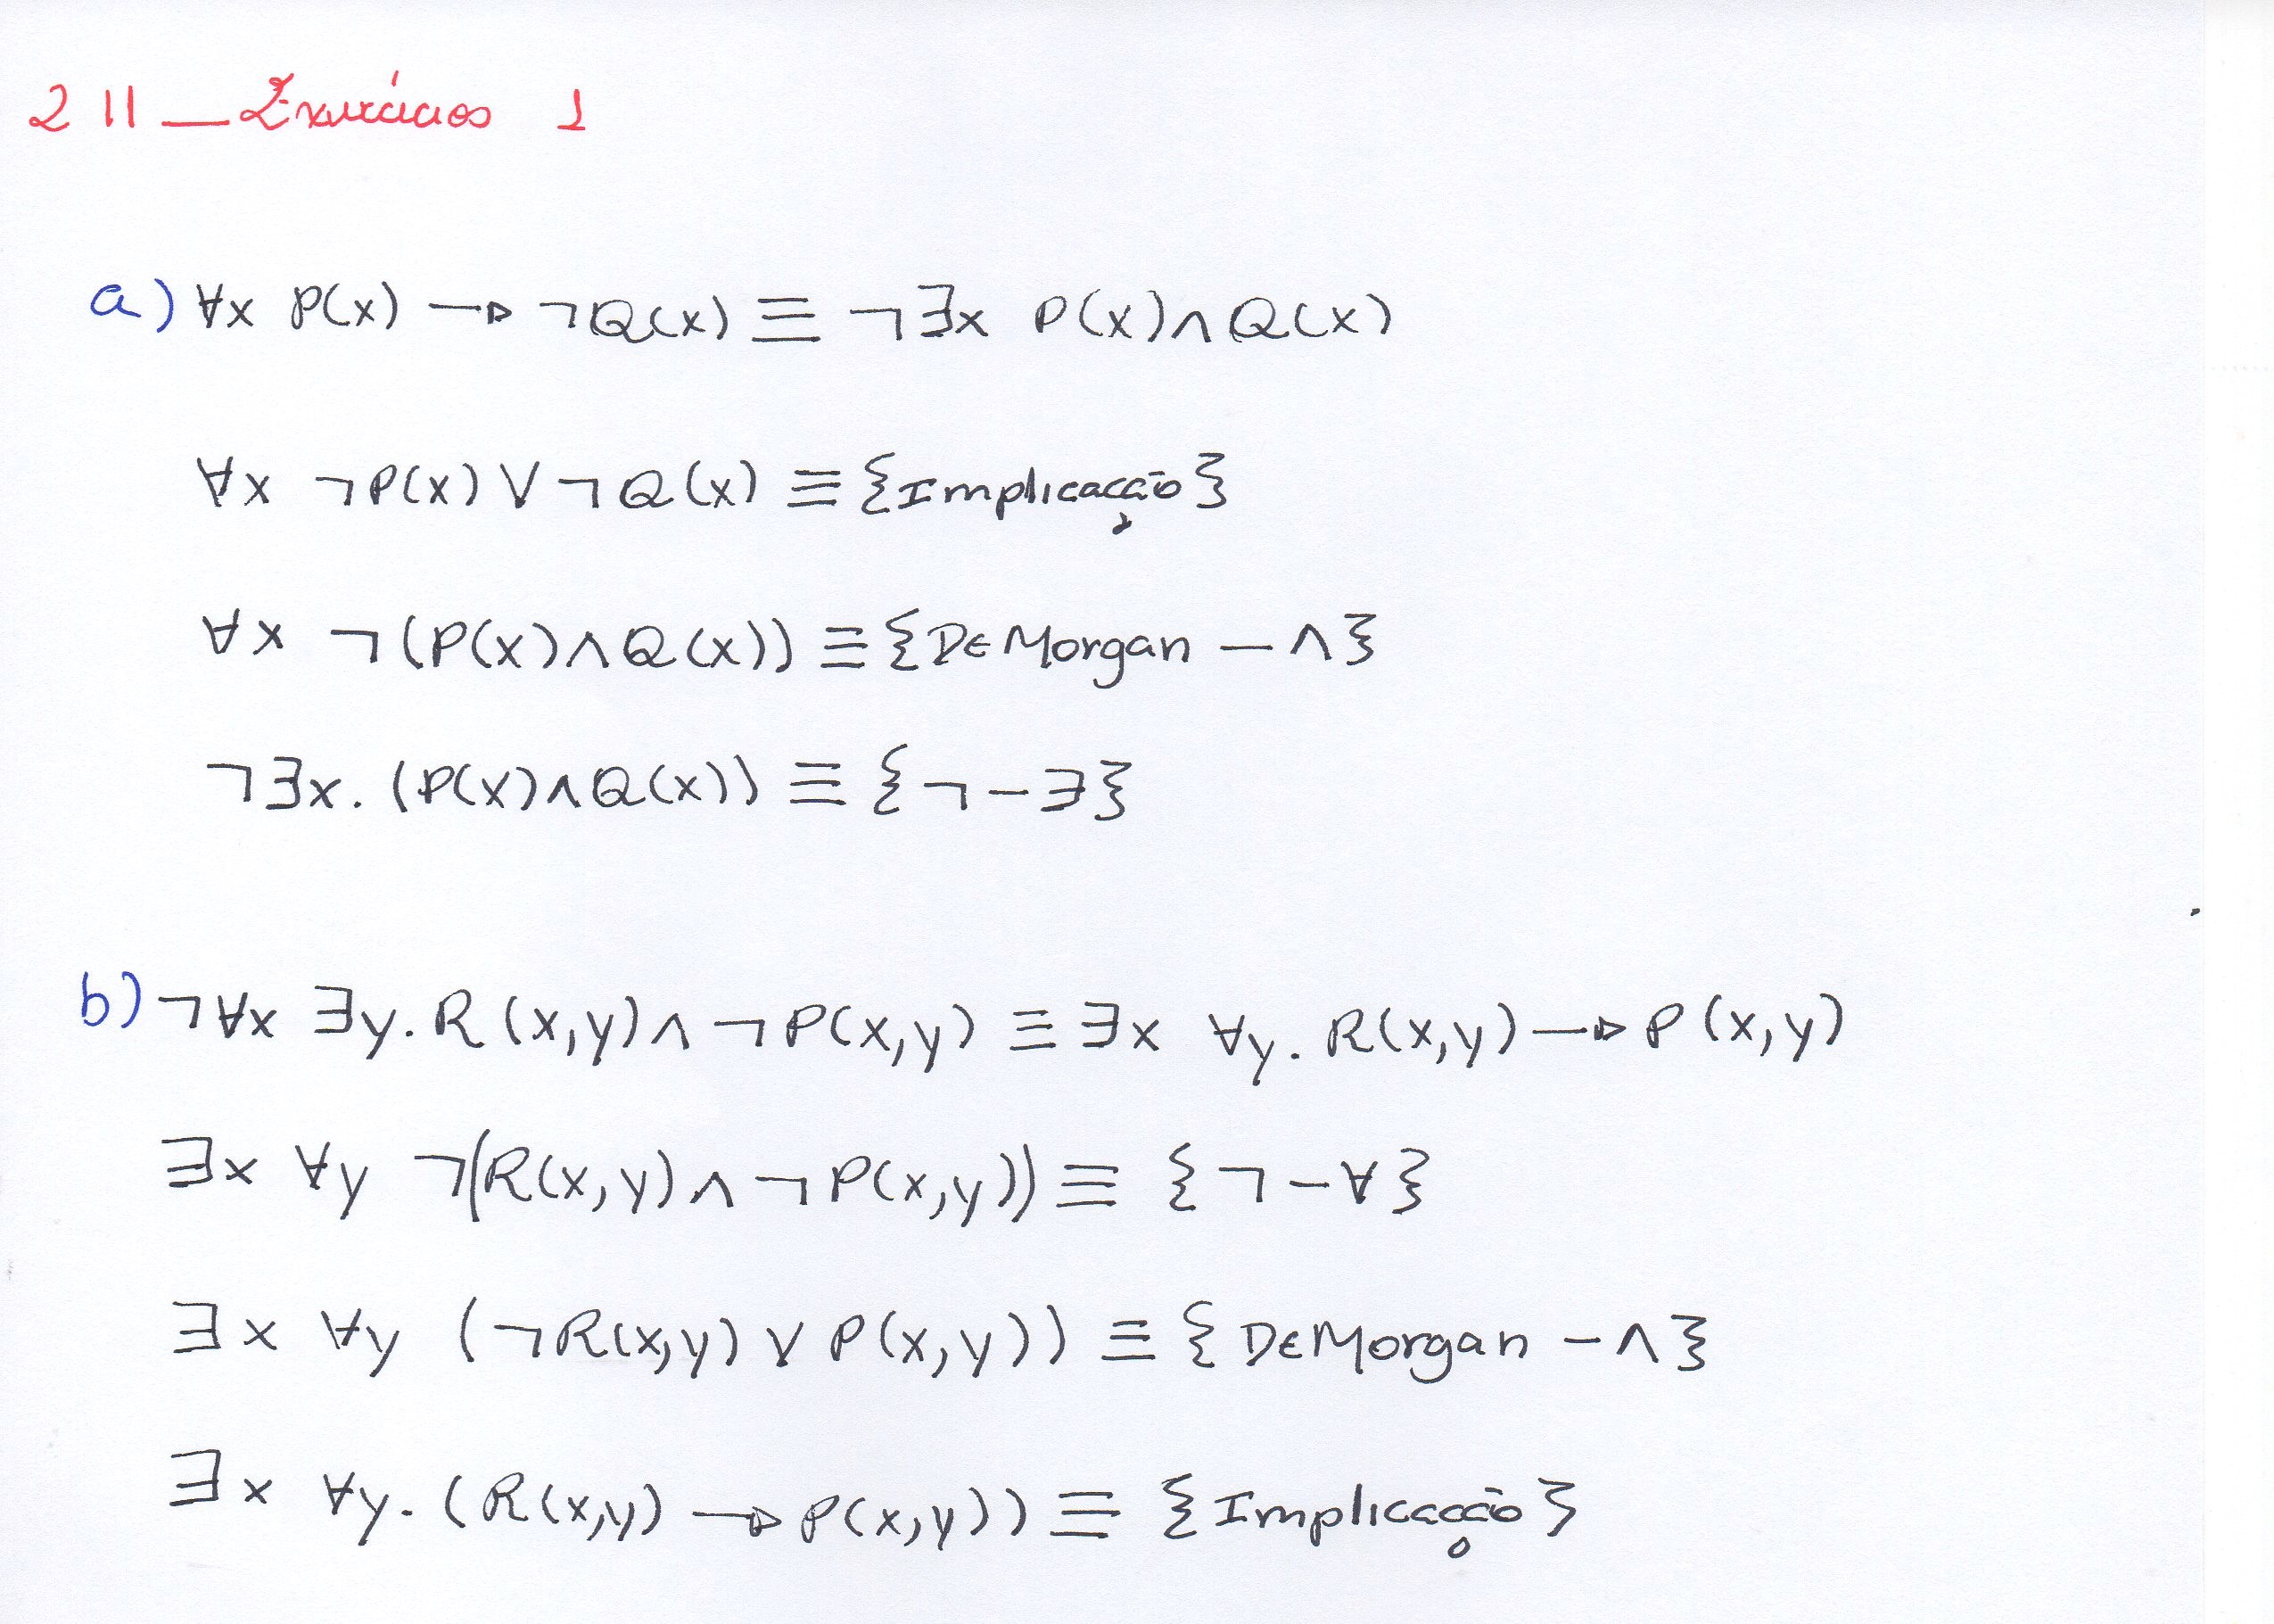 2 11 — Exercícios 1
a) ∀x P(x) → ¬Q(x) ≡ ¬∃x P(x)∧Q(x)
∀x ¬P(x) ∨ ¬Q(x) ≡ {Implicacção}
∀x ¬(P(x)∧Q(x)) ≡ {DEMorgan - ∧}
¬∃x. (P(x)∧Q(x)) ≡ {¬-∃}
b) ¬∀x ∃y. R(x,y)∧¬P(x,y) ≡ ∃x ∀y. R(x,y) → P(x,y)
∃x ∀y ¬(R(x,y)∧¬P(x,y)) ≡ {¬-∀}
∃x ∀y (¬R(x,y) ∨ P(x,y)) ≡ {DEMorgan - ∧}
∃x ∀y. (R(x,y) → P(x,y)) ≡ {Implicacção}